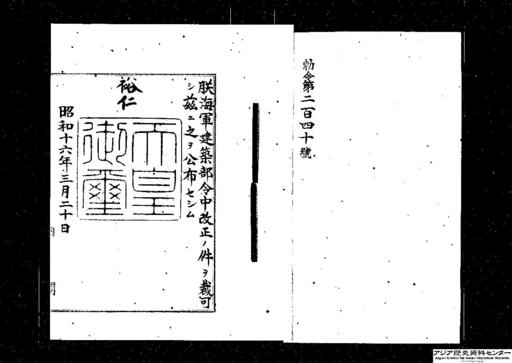 勅令第二百四十號
朕海軍建築部令中改正ノ件ヲ裁可
シ茲ニ之ヲ公布セシム
裕仁
天皇
御璽
昭和十六年三月二十日
内閣
アジア歴史資料センター
Japan Center for Asian Historical Records